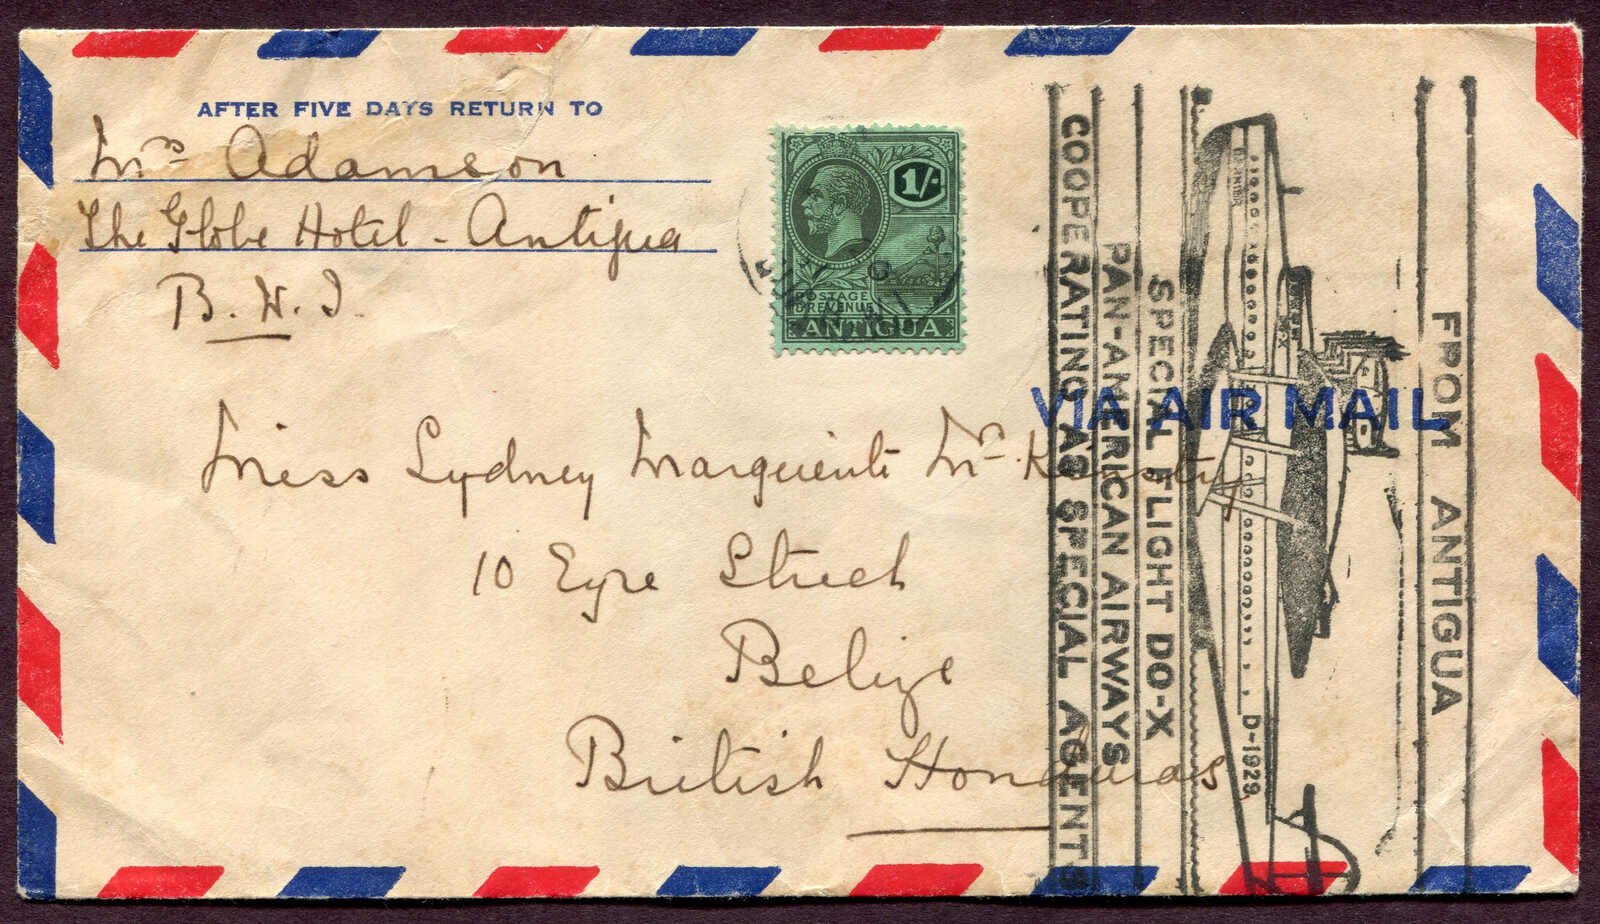 AFTER FIVE DAYS RETURN TO
Mrs Adamson
The Globe Hotel - Antigua
B. W. I.
1/-
POSTAGE
& REVENUE
ANTIGUA
VIA AIR MAIL
Miss Sydney Marguerite
10 Eyre Street
Belize
British Honduras
FROM ANTIGUA
D-1929
SPECIAL FLIGHT DO-X
PAN-AMERICAN AIRWAYS
COOPERATING AS SPECIAL AGENTS